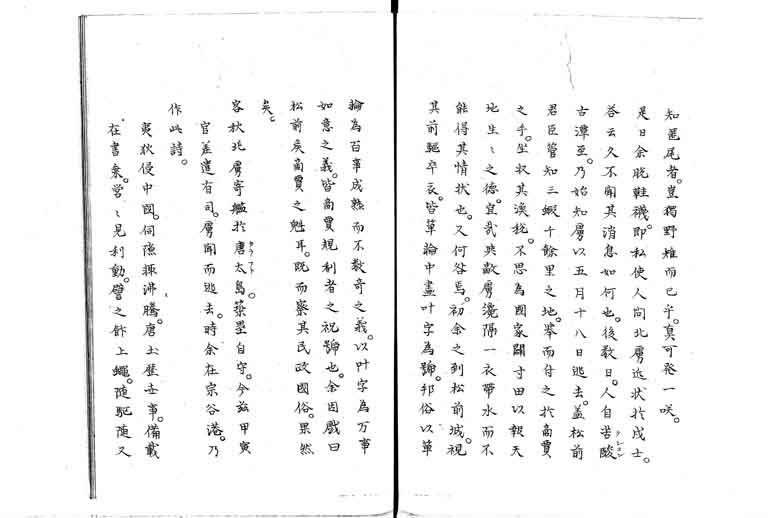 知匿尾者。豈獨野雉而已乎。真可発一咲。
是日余脱鞋襪。即私使人问北虜近状於戍士。
答云久不聞其消息如何也。後数日。人自苦酸クシュン
古潭至。乃始知虜以五月十八日逃去。蓋松前
君臣管知三蝦千餘里之地。挙而付之於商賈
之手。坐収其漁税。不思為國家闢寸田以報天
地生〻之德。宜哉與敵虜纔隔一衣帶水而不
能得其情状也。又何咎焉。初余之到松前城。視
其前驅卒衣。皆草輪中畫叶字為號。邦俗以草
輪為百事成熟而不敷奇之義。以叶字為万事
如意之義。皆商賈規利者之祝號也。余因戲曰
松前矦商賈之魁耳。既而察其民政國俗。果然
矣。
客秋北虜寄艦於唐太カラフト島。築壘自守。今茲甲寅
官差遣有司。虜聞而逃去。時余在宗谷港。乃
作此詩。
夷狄侵中國。伺隙輙沸騰。唐土歴世事。備載
在書柰。営〻見利動。譬之餅上蠅。随駆随又